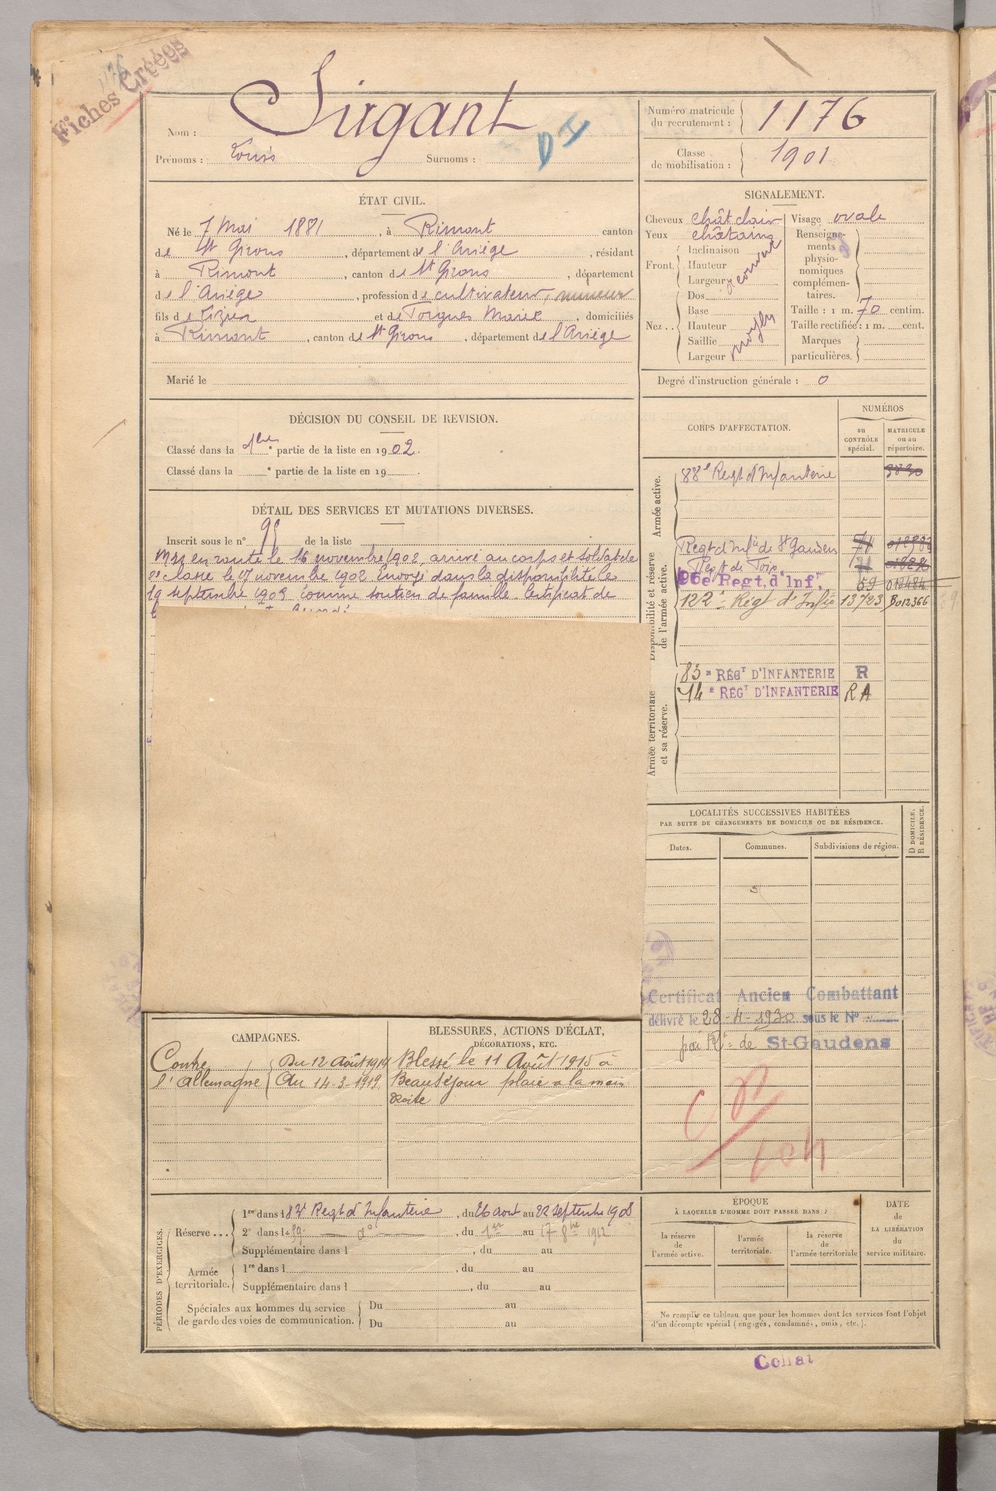 Fiches Créées
1176
Nom : Sirgant
Prénoms : Louis Surnoms :
D I
Numéro matricule du recrutement : 1176
Classe de mobilisation : 1901
ÉTAT CIVIL.
Né le 7 Mai 1881, à Rimont canton
de St Girons, département de l'Ariège, résidant
à Rimont, canton de St Girons, département
de l'Ariège, profession de cultivateur, mineur
fils de et de Torgues Marie, domiciliés
à Rimont, canton de St Girons, département de l'Ariège
Marié le
SIGNALEMENT.
Cheveux chât clair Visage ovale
Yeux châtains
Front Inclinaison
Hauteur
Largeur
Nez Dos
Base
Hauteur moyen
Saillie
Largeur
Renseignements physionomiques complémentaires.
Taille : 1 m. 70 centim.
Taille rectifiée : 1 m. cent.
Marques particulières.
Degré d'instruction générale : 0
DÉCISION DU CONSEIL DE REVISION.
Classé dans la 1ère partie de la liste en 1902.
Classé dans la e partie de la liste en 19
DÉTAIL DES SERVICES ET MUTATIONS DIVERSES.
Inscrit sous le n° de la liste
Mis en route le 16 novembre 1902, arrivé au corps et soldat de
2e classe le 17 novembre 1902. Envoyé dans la disponibilité le
19 septembre 1903 comme soutien de famille. Certificat de
CORPS D'AFFECTATION.
NUMÉROS
au CONTRÔLE spécial.
MATRICULE ou au répertoire.
Armée active.
88e Regt d'Infanterie
Disponibilité et réserve de l'armée active.
Regt d'Infie de St Gaudens
Regt de Foix
96e Regt d'Inf. 59
122e Régt d'Infie 13723 B012366
Armée territoriale et sa réserve.
83e RÉGT D'INFANTERIE R
14e RÉGT D'INFANTERIE RA
LOCALITÉS SUCCESSIVES HABITÉES
PAR SUITE DE CHANGEMENTS DE DOMICILE OU DE RÉSIDENCE.
Dates. Communes. Subdivisions de région. D DOMICILE, R RÉSIDENCE.
Certificat Ancien Combattant
délivré le 28-4-1930 sous le N°
par Rt de St-Gaudens
CAMPAGNES.
Contre l'Allemagne
Du 12 Août 1914
Au 14-3-1919
BLESSURES, ACTIONS D'ÉCLAT,
DÉCORATIONS, ETC.
Blessé le 11 Août 1915 à
Beauséjour plaie à la main
droite
PÉRIODES D'EXERCICES.
Réserve ... 1re dans l 83e Regt d'Infanterie, du 26 aout au 22 septembre 1908
2e dans l 89 do, du 1er au 17 8bre 1912
Supplémentaire dans l , du au
Armée territoriale. 1re dans l , du au
Supplémentaire dans l , du au
Spéciales aux hommes du service de garde des voies de communication. Du au
Du au
ÉPOQUE
À LAQUELLE L'HOMME DOIT PASSER DANS :
la réserve de l'armée active.
l'armée territoriale.
la réserve de l'armée territoriale
DATE de LA LIBÉRATION du service militaire.
Ne remplir ce tableau que pour les hommes dont les services font l'objet
d'un décompte spécial (engagés, condamnés, omis, etc.).